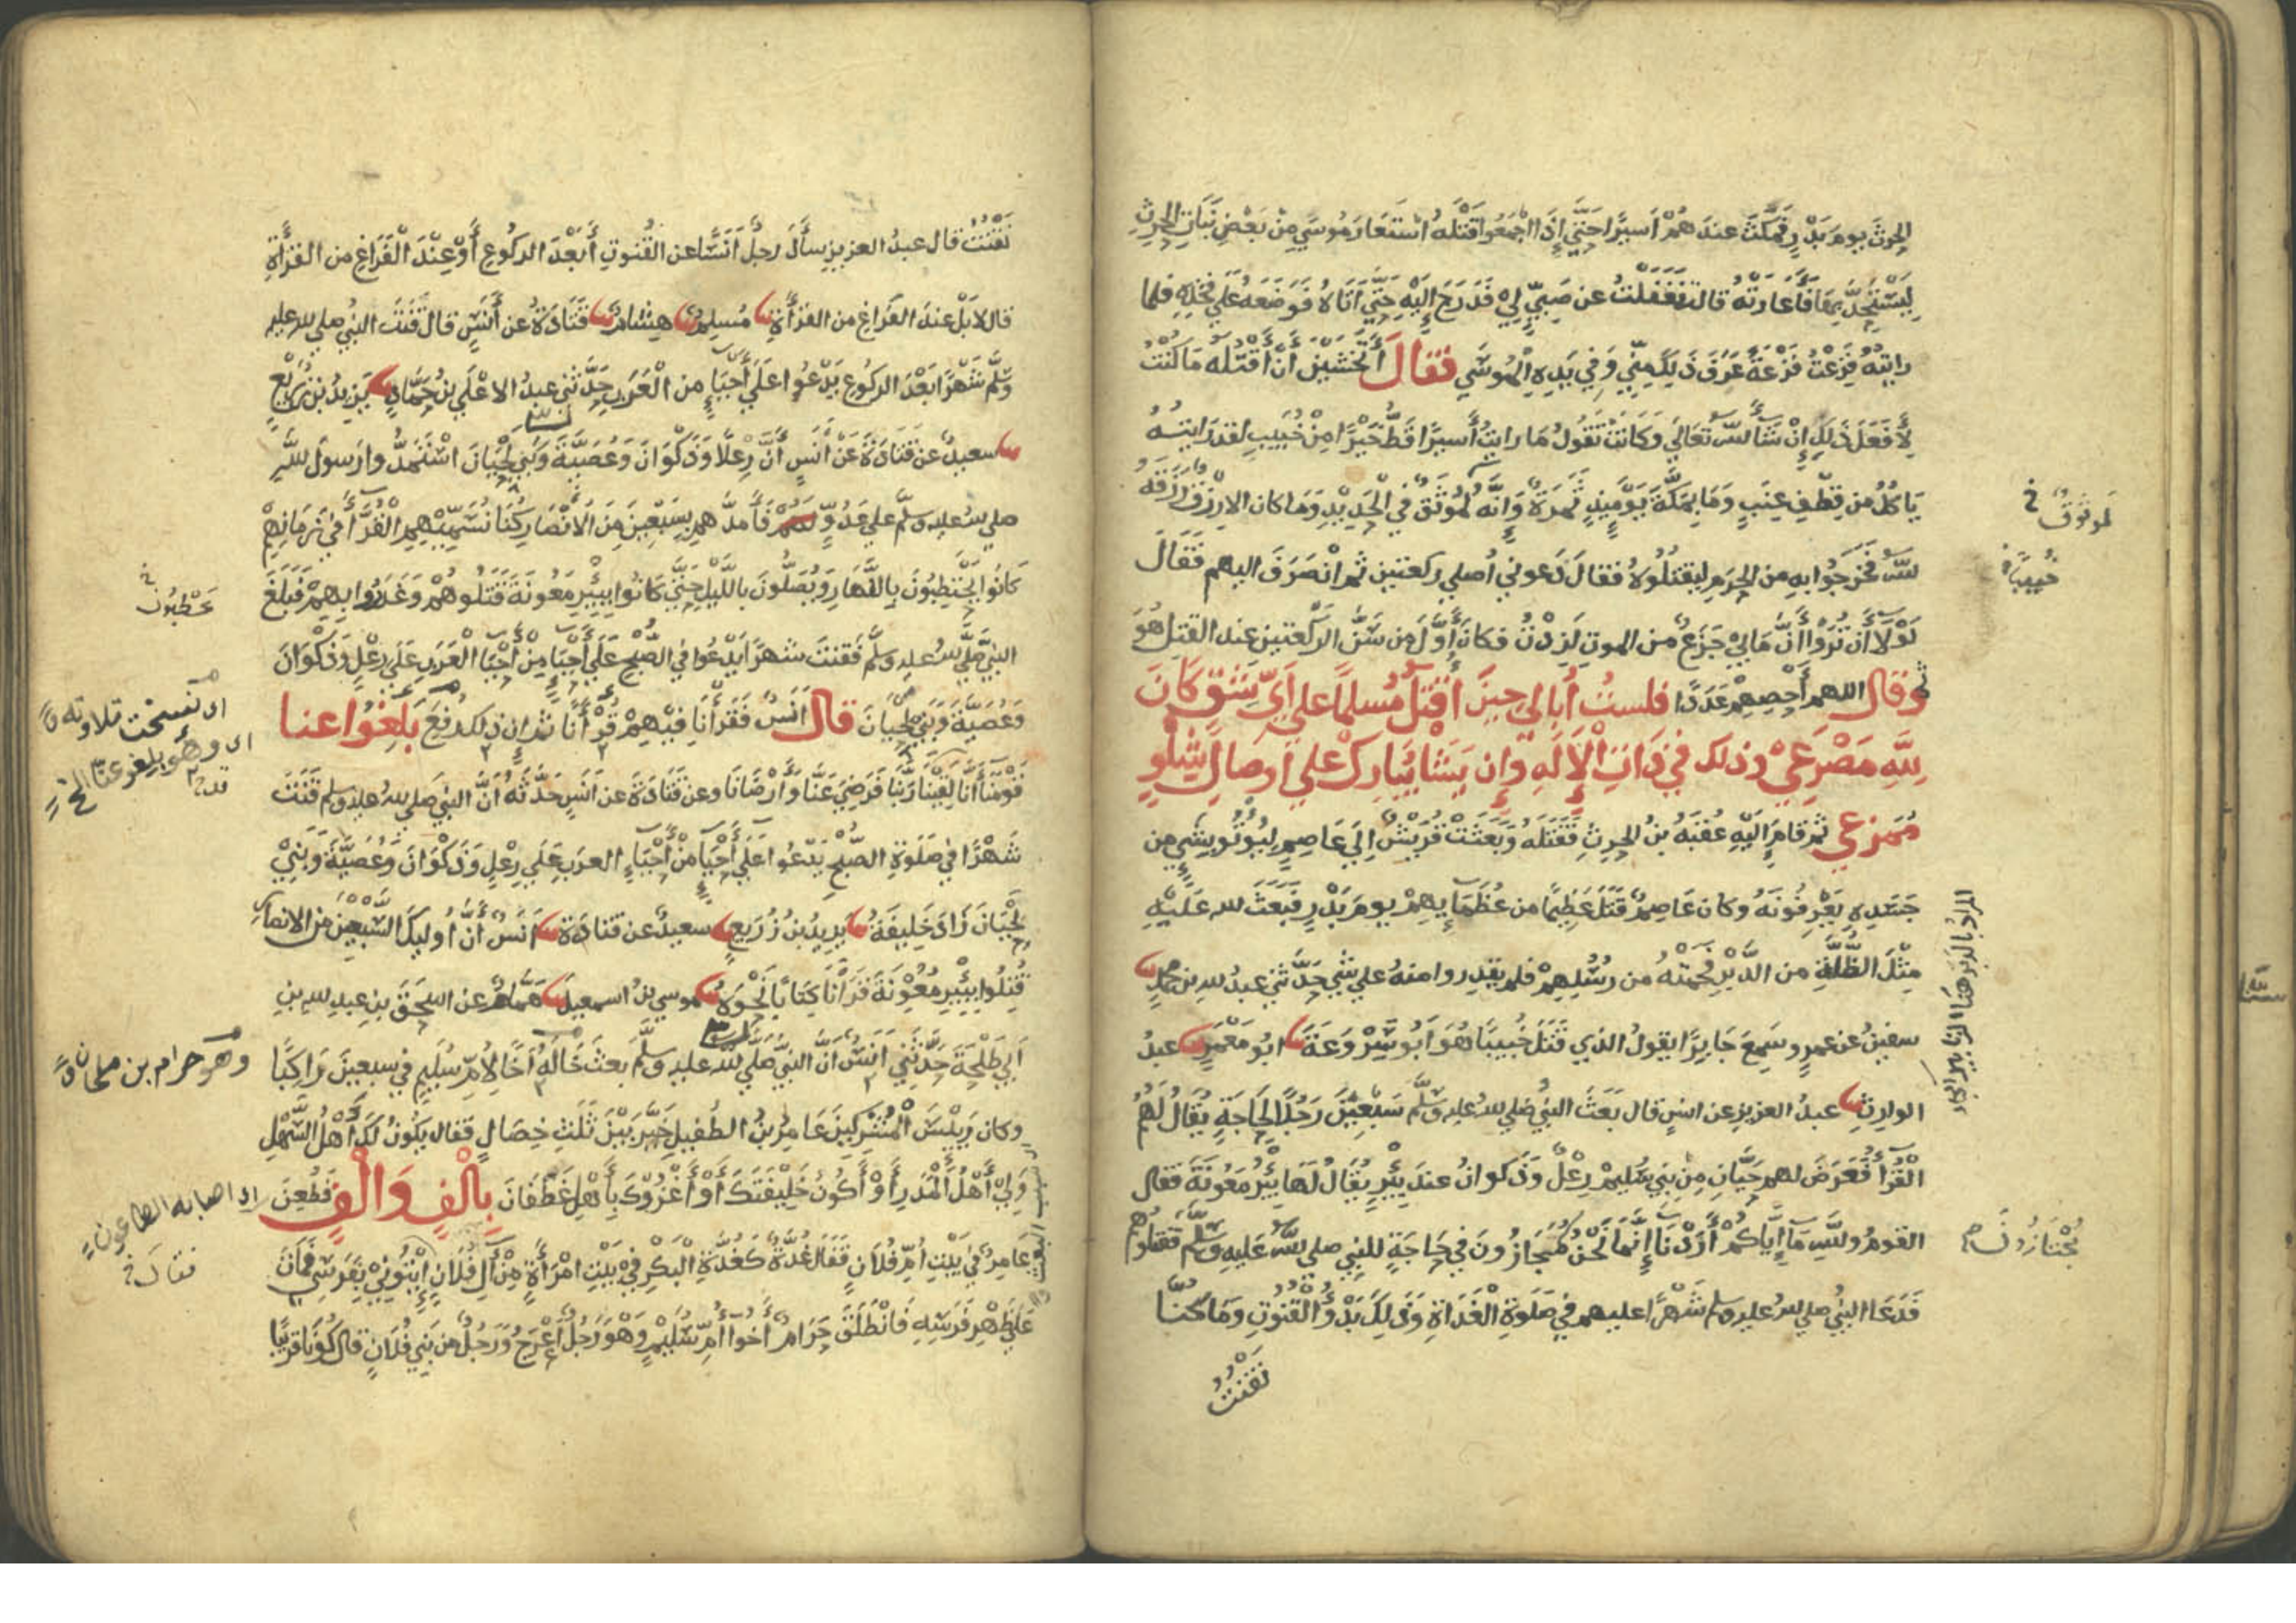 الحرث يوم بدر فمكث عندهم أسيرا حتى إذا اجمعوا قتله استعار موسى من بعض بنات الحرث
ليستحد بها فأعارته قالت فغفلت عن صبي لي فدرج إليه حتى أتاه فوضعه على فخذه فلما
رايته فزعت فزعة عرف ذلك مني وفي يده الموسى فقال أتخشين أن أقتله ما كنت
لأفعل ذلك إن شاء الله تعالى وكانت تقول ما رايت أسيرا قط خيرا من خبيب لقد رايته
ياكل من قطف عنب وما بمكة يوميذ ثمرة وإنه لموثق في الحديد وما كان الا رزق رزقه
الله فخرجوا به من الحرم ليقتلوه فقال دعوني أصلي ركعتين ثم انصرف اليهم فقال
لولا أن تروا أن ما بي جزع من الموت لزدت فكان أول من سن الركعتين عند القتل هو
ثم وقال اللهم أحصهم عددا فلست أبالي حين أقتل مسلما على أي شق كان
لله مصرعي وذلك في ذات الإله وإن يشا يبارك على أوصال شلو
ممزع ثم قام إليه عقبة بن الحرث فقتله وبعثت قريش إلى عاصم ليؤتو بشي من
جسده يعرفونه وكان عاصم قتل عظيما من عظمايهم يوم بدر فبعث الله عليه
مثل الظلة من الدبر فحمته من رسلهم فلم يقدروا منه على شي حدثني عبد الله بن محمد
سفين عن عمرو سمع جابرا يقول الذي قتل خبيبا هو أبو سروعة ابو معمر عبد
الوارث عبد العزيز عن انس قال بعث النبي صلى الله عليه وسلم سبعين رجلا لحاجة يقال لهم
القرآ فعرض لهم حيان من بني سليم رعل وذكوان عند بئر يقال لها بئر معونة فقال
القوم والله ما إياكم أردنا إنما نحن مجازون في حاجة للنبي صلى الله عليه وسلم فقتلوهم
فدعا النبي صلى الله عليه وسلم شهرا عليهم في صلوة الغداة وذلك بدؤ القنوت وما كنا
نقنت
لموثوق خ
خبيبا
المراد بالدبر هنا الزنابير
مجتازون
نقنت قال عبد العزيز سأل رجل أنسا عن القنوت أبعد الركوع أو عند الفراغ من القرأة
قال لا بل عند الفراغ من القرأة مسلم هشام قتادة عن أنس قال قنت النبي صلى الله عليه
وسلم شهرا بعد الركوع يدعوا على أحياء من العرب حدثني عبد الاعلى بن حماد يزيد بن زريع
سعيد عن قتادة عن أنس أن رعلا وذكوان وعصية وبني لحيان استمدوا رسول الله
صلى الله عليه وسلم على عدو لهم فأمدهم بسبعين من الانصار كنا نسميهم القرآ في زمانهم
كانوا يحتطبون بالنهار ويصلون بالليل حتى كانوا ببئر معونة قتلوهم وغدروا بهم فبلغ
النبي صلى الله عليه وسلم فقنت شهرا يدعوا في الصبح على أحياء من أحياء العرب على رعل وذكوان
وعصية وبني لحيان قال أنس فقرأنا فيهم قرآنا ثم إن ذلك رفع بلغوا عنا
قومنا أنا لقينا ربنا فرضي عنا وأرضانا وعن قتادة عن انس حدثه أن النبي صلى الله عليه وسلم قنت
شهرا في صلوة الصبح يدعوا على أحياء من أحياء العرب على رعل وذكوان وعصية وبني
لحيان زاد خليفة يزيد بن زريع سعيد عن قتادة انس أن أوليك السبعين من الانصار
قتلوا ببئر معونة قرآنا كتابا نحوه موسى بن اسمعيل همام عن اسحق بن عبد الله بن
أبي طلحة حدثني انس أن النبي صلى الله عليه وسلم بعث خاله أخا لأم سليم في سبعين راكبا
وكان رئيس المشركين عامر بن الطفيل خير بين ثلث خصال فقال يكون لك أهل السهل
ولي أهل المدر أو أكون خليفتك أو أغزوك بأهل غطفان بألف وألف فطعن
عامر في بيت أم فلان فقال غدة كغدة البكر في بيت امرأة من آل فلان ايتوني بفرسي فمات
على ظهر فرسه فانطلق حرام أخو أم سليم وهو رجل أعرج ورجل من بني فلان قال كونا قريبا
يحطبون خ
اى نسخت تلاوته
اى وهو بلغوا عنا الخ
وهو حرام بن ملحان
اى اصابه الطاعون
فقال خ